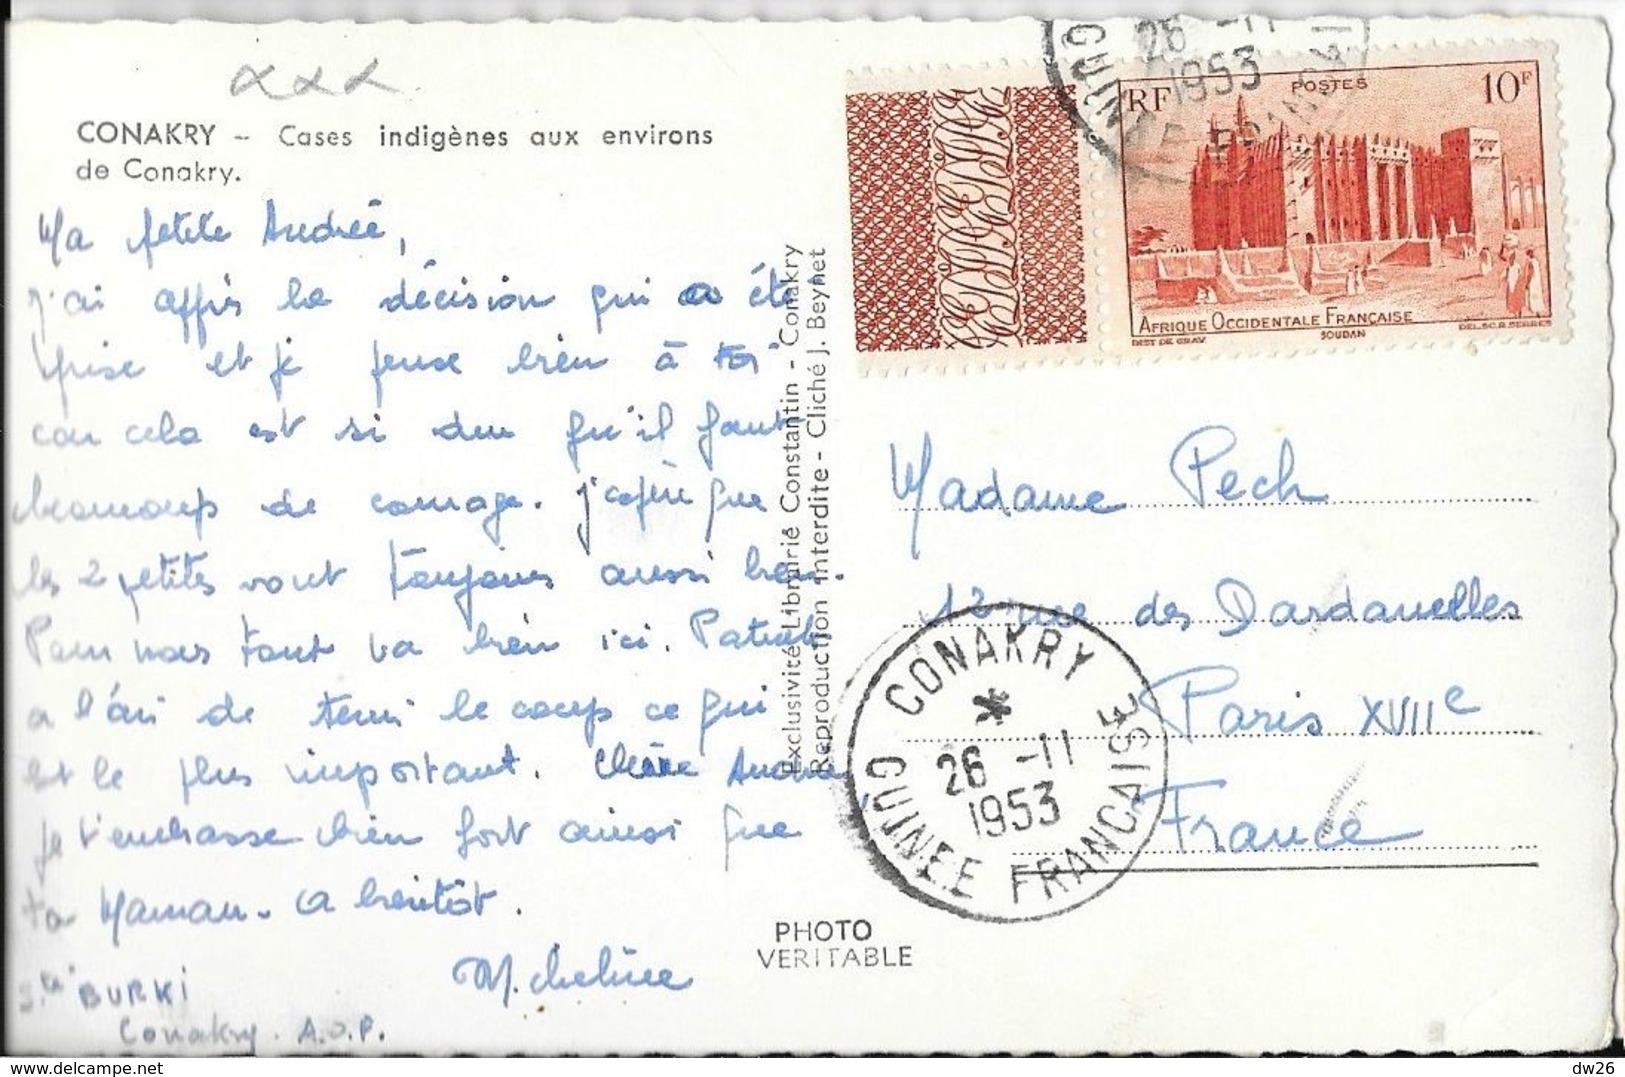 CONAKRY – Cases indigènes aux environs
de Conakry.
Ma petite Andrée,
j'ai appris la décision qui a été
prise et je pense bien à toi
car cela est si dur qu'il faut
beaucoup de courage. j'espère que
les 2 petites vont toujours aussi bien.
Pour nous tout va bien ici. Patrick
a l'air de tenir le coup ce qui
est le plus important. Chère Andrée
je t'embrasse bien fort ainsi que
ta Maman. a bientôt.
Micheline
BURKI
Conakry. A.O.F.
Exclusivité Librairie Constantin - Conakry
Reproduction interdite - Cliché J. Beynet
PHOTO
VERITABLE
26 -11
1953
GUINEE FRANCAISE
RF
POSTES
10F
AFRIQUE OCCIDENTALE FRANÇAISE
INST DE GRAV.
SOUDAN
DEL.SC.R.SERRES
Madame Pech
12 rue des Dardanelles
Paris XVIIe
France
CONAKRY
26 -11
1953
GUINEE FRANCAISE
dw26